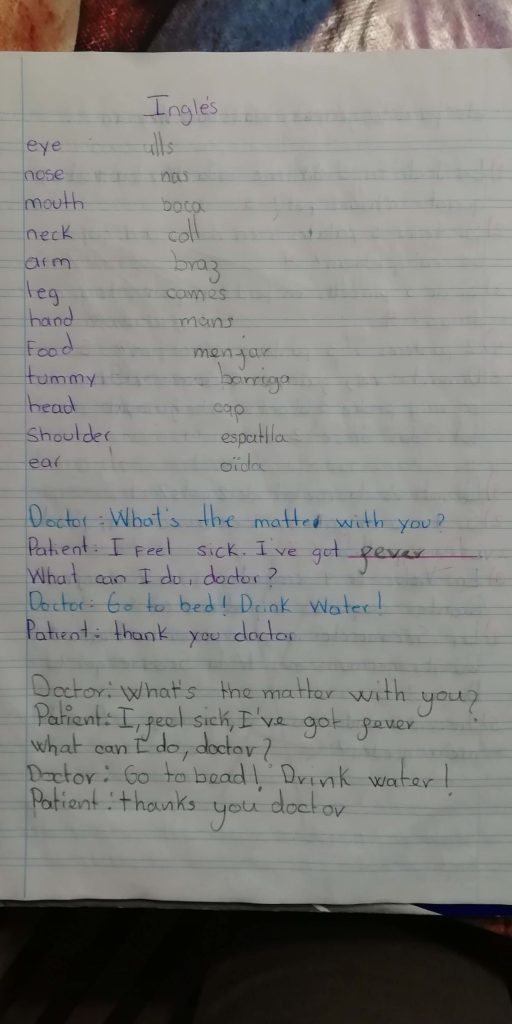 Inglés
eye ulls
nose nas
mouth boca
neck coll
arm braz
leg cames
hand mans
Food menjar
tummy barriga
head cap
shoulder espatlla
ear oïda
Doctor: What's the matter with you?
Patient: I Feel sick. I've got fever
What can I do, doctor?
Doctor: Go to bed! Drink Water!
Patient: thank you doctor
Doctor: What's the matter with you?
Patient: I, feel sick, I've got fever
what can I do, doctor?
Doctor: Go to bead! Drink water!
Patient: thanks you doctor